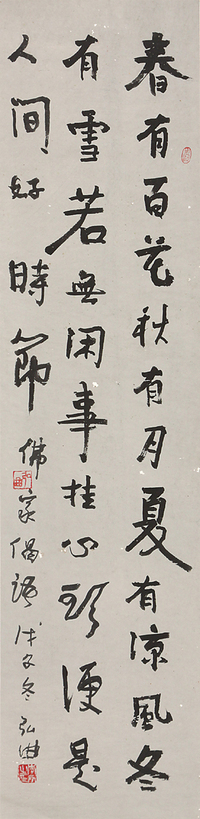 春有百花秋有月夏有凉風冬
有雪若無闲事挂心頭便是
人间好時節
佛家偈語戊子冬弘曲